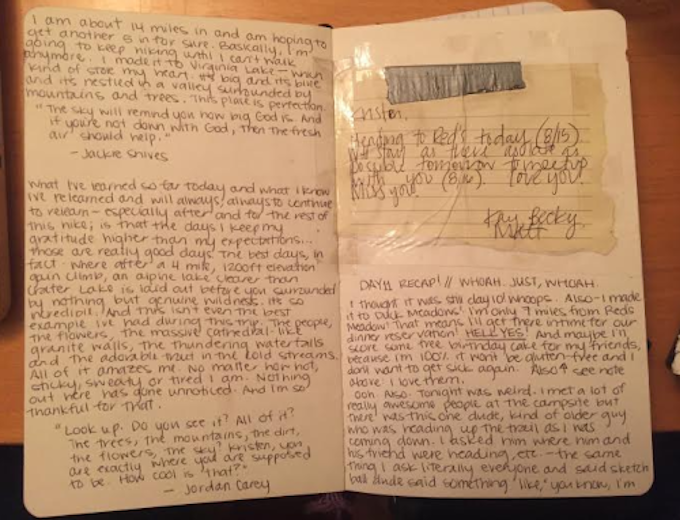 I am about 14 miles in and am hoping to
get another 8 in for sure. Basically, I'm
going to keep hiking until I can't walk
anymore. I made it to Virginia Lake - which
kind of stole my heart. It's big and its blue
and its nestled in a valley surrounded by
mountains and trees. This place is perfection.
"The sky will remind you how big God is. And
if you're not down with God, then the fresh
air should help."
- Jackie Shives
What I've learned so far today and what I know
I've relearned and will always! always to continue
to relearn - especially after and for the rest of
this hike; is that the days I keep my
gratitude higher than my expectations...
those are really good days. The best days, in
fact. Where after a 4 mile, 1200ft elevation
gain climb, an alpine lake clearer than
Crater Lake is laid out before you surrounded
by nothing but genuine wildness. Its so
incredible. And this isn't even the best
example I've had during this trip. The people,
the flowers, the massive cathedral-like
granite walls, the thundering waterfalls
and the adorable trout in the cold streams.
All of it amazes me. No matter how hot,
sticky, sweaty or tired I am. Nothing
out here has gone unnoticed. And I'm so
thankful for that.
"Look up. Do you see it? All of it?
The trees, the mountains, the dirt,
the flowers, the sky? Kristen, you
are exactly where you are supposed
to be. How cool is that?"
- Jordan Carey
Kristen,
Heading to Red's today (8/15).
Will stay as there as late as
possible tomorrow to meet up
with you (8/16). Love you!
Miss you!
Kay, Becky,
Matt
DAY 11 RECAP! // WHOAH. JUST, WHOAH.
I thought it was still day 10! Whoops. Also - I made
it to Duck Meadows! I'm only 7 miles from Reds
Meadow! That means I'll get there in time for our
dinner reservation! HELL YES! And maybe I'll
score some free birthday cake for my friends,
because I'm 100% it wont be gluten-free and I
dont want to get sick again. Also, see note
above. I love them.
Ooh. Also. Tonight was weird. I met a lot of
really awesome people at the campsite but
there was this one dude, kind of older guy
who was heading up the trail as I was
coming down. I asked him where him and
his friend were heading, etc. - the same
thing I ask literally everyone and said sketch
ball dude said something like, "you know, I'm